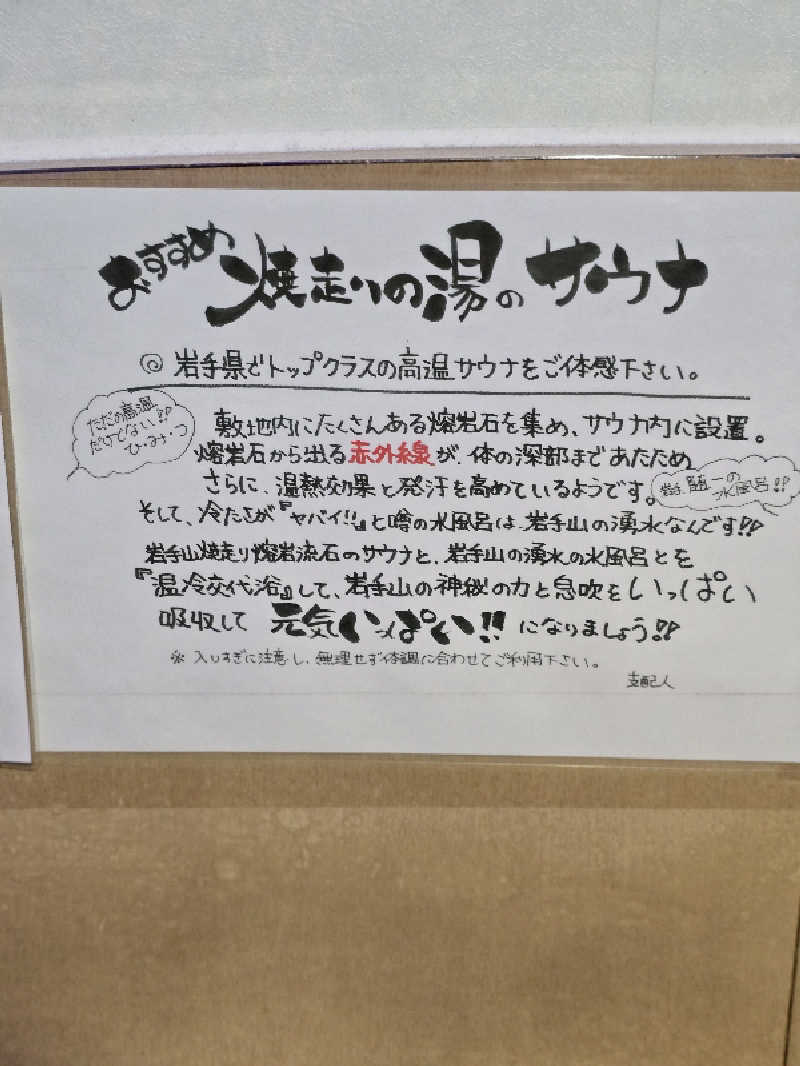 おすすめ 焼走りの湯のサウナ
◎ 岩手県でトップクラスの高温サウナをご体感下さい。
ただの高温
だけでない!!
ひ・み・つ
敷地内にたくさんある熔岩石を集め、サウナ内に設置。
熔岩石から出る赤外線が、体の深部まであたため
さらに、温熱効果と発汗を高めているようです。
唯一の
水風呂!!
そして、冷たさが『ヤバイ!!』と噂の水風呂は、岩手山の湧水なんです!!
岩手山焼走り熔岩流石のサウナと、岩手山の湧水の水風呂とを
『温冷交代浴』して、岩手山の神秘の力と息吹をいっぱい
吸収して 元気いっぱい!! になりましょう!!
※ 入りすぎに注意し、無理せず体調に合わせてご利用下さい。
支配人